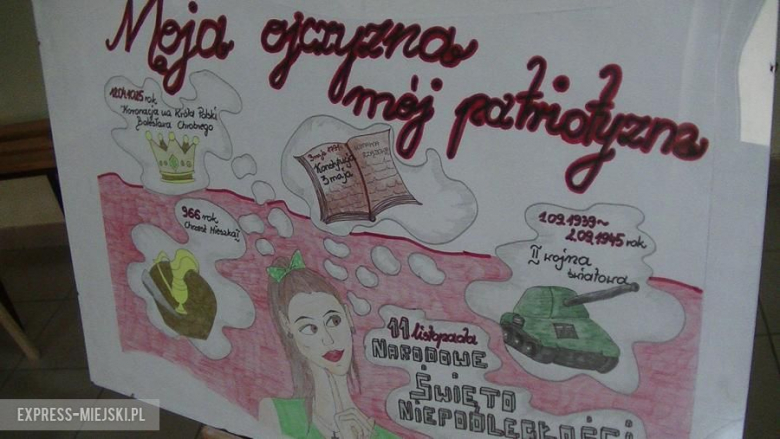 Moja ojczyzna
mój patriotyzm
18.04.1025 rok
Koronacja na Króla Polski
Bolesława Chrobrego
3 maja 1791
Konstytucja
3 maja
966 rok
Chrzest Mieszka I
1.09.1939~
2.09.1945 rok
II wojna
światowa
11 listopada
NARODOWE
ŚWIĘTO
NIEPODLEGŁOŚCI
EXPRESS-MIEJSKI.PL